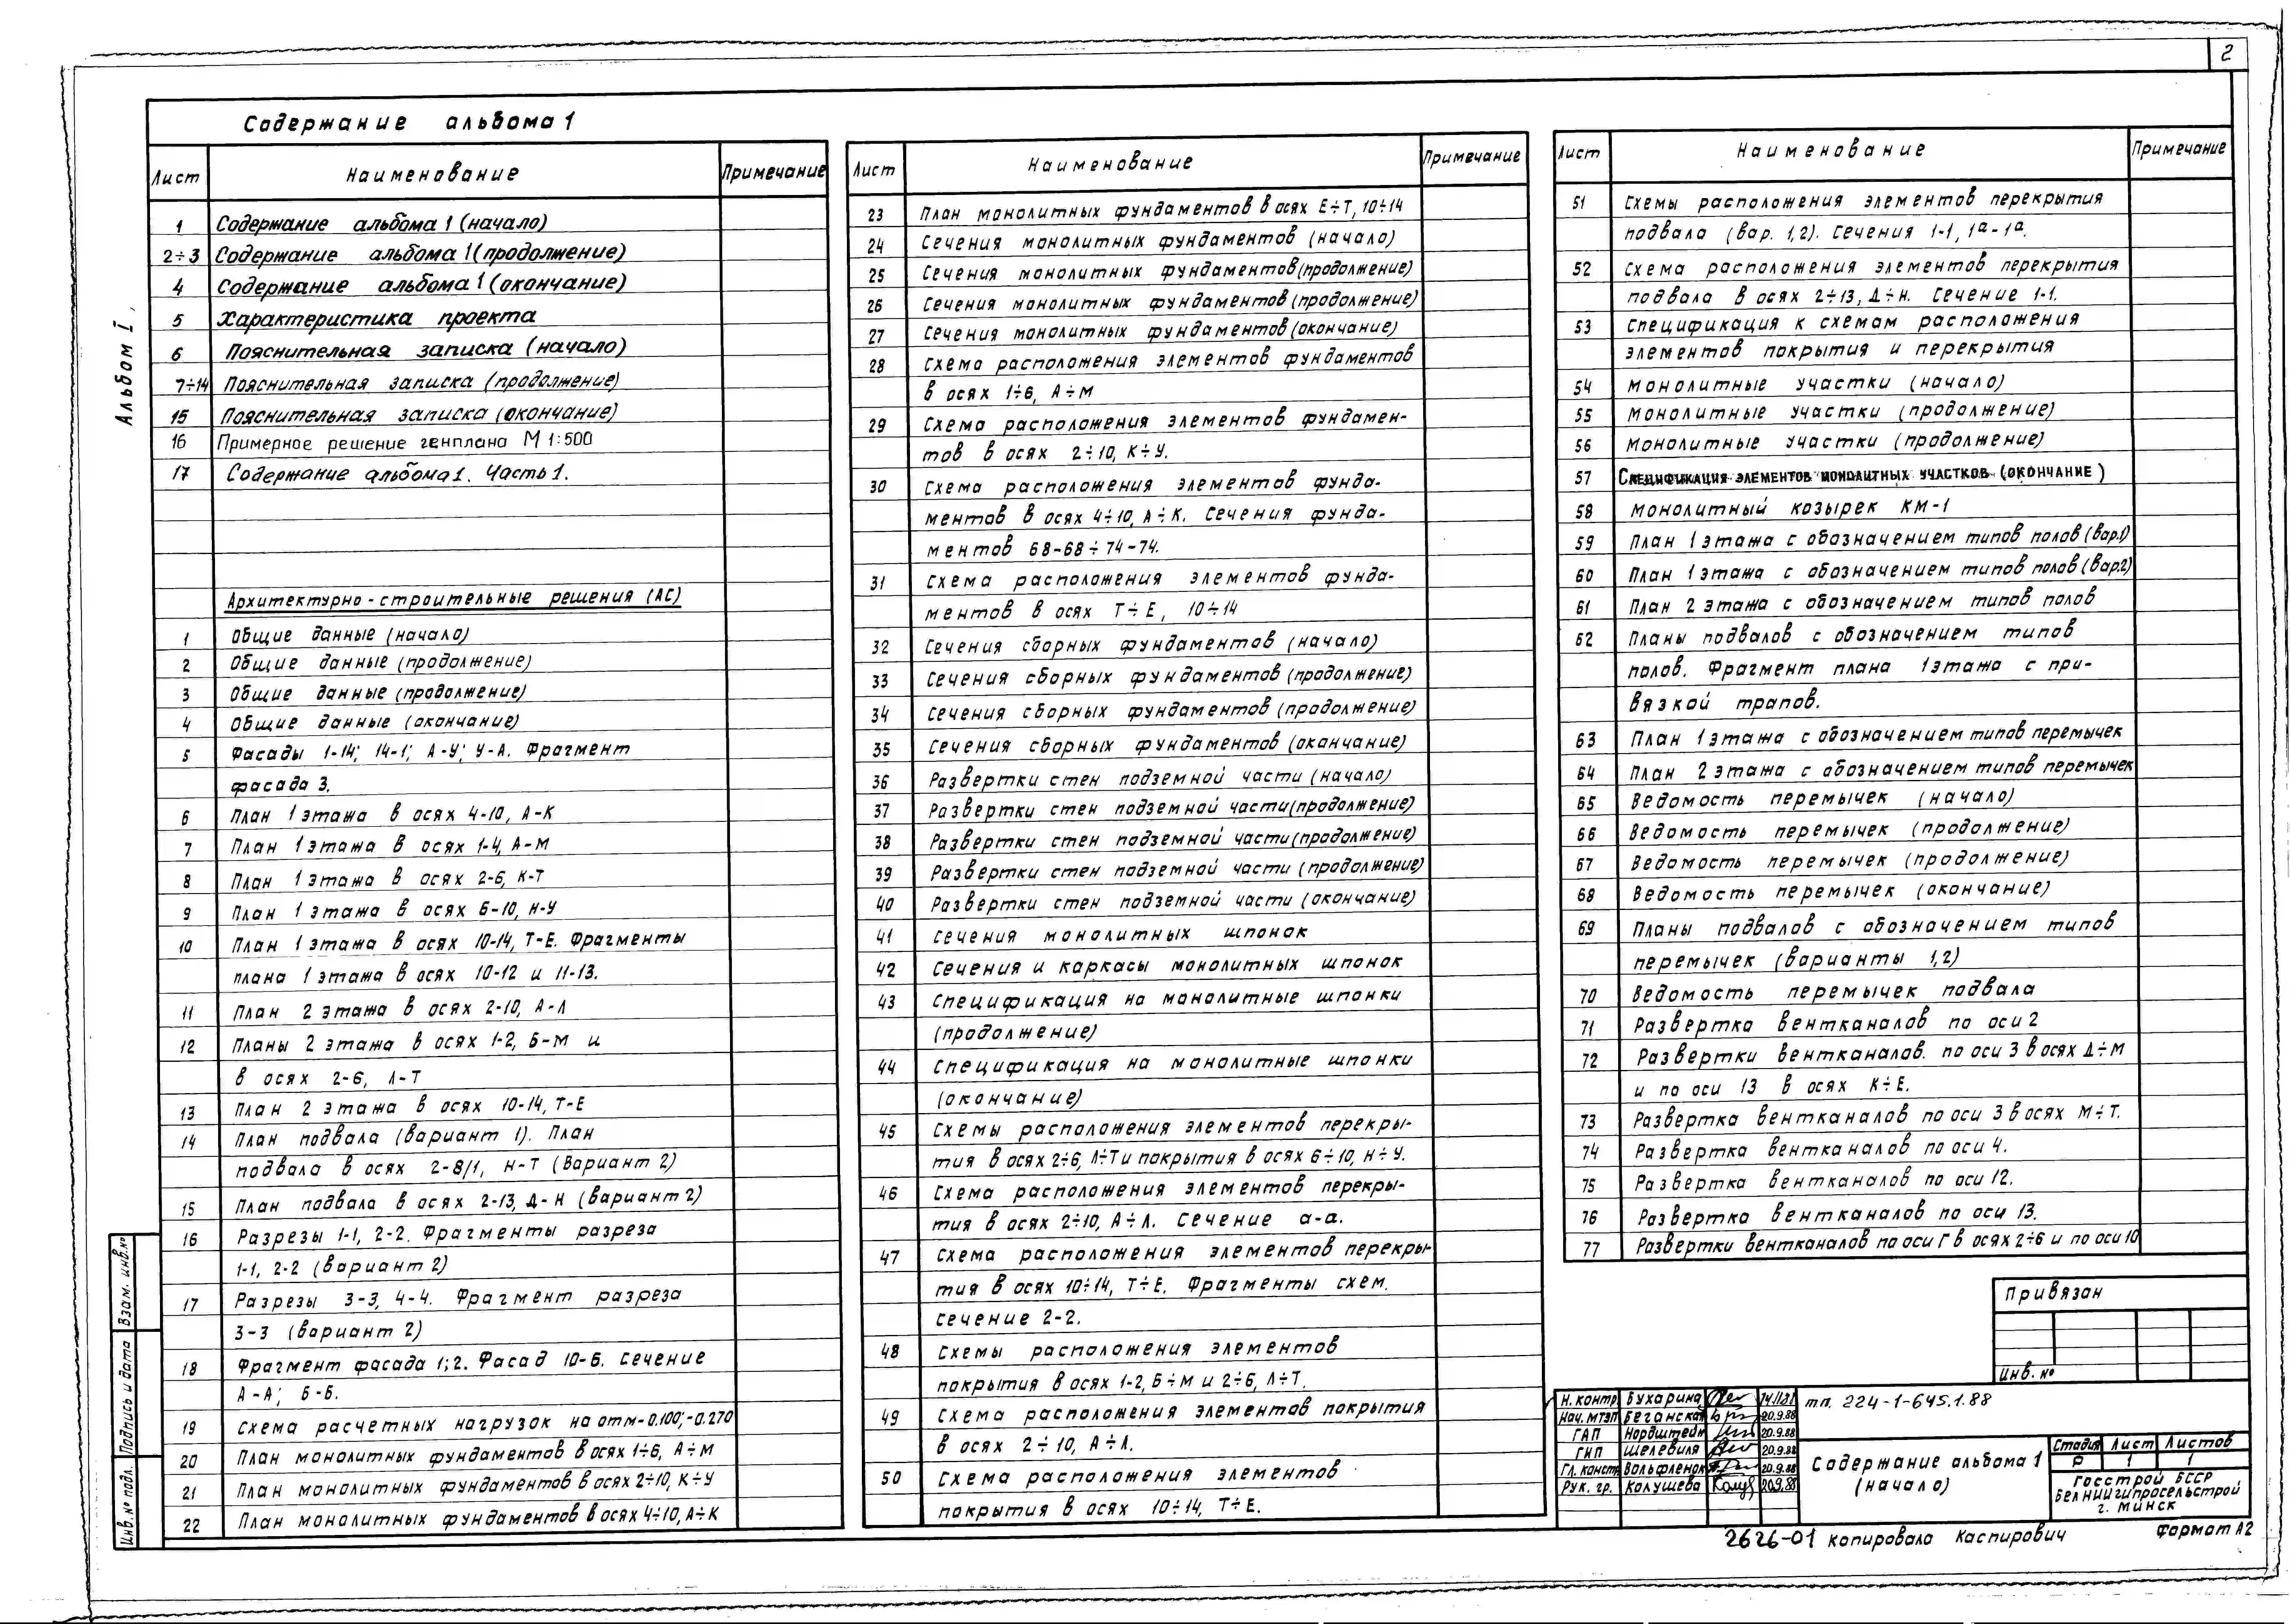 2
Альбом I,
Содержание альбома 1
Лист Наименование Примечание
1 Содержание альбома 1 (начало)
2÷3 Содержание альбома 1 (продолжение)
4 Содержание альбома 1 (окончание)
5 Характеристика проекта
6 Пояснительная записка (начало)
7÷14 Пояснительная записка (продолжение)
15 Пояснительная записка (окончание)
16 Примерное решение генплана М 1:500
17 Содержание альбома 1. Часть 1.
Архитектурно-строительные решения (АС)
1 Общие данные (начало)
2 Общие данные (продолжение)
3 Общие данные (продолжение)
4 Общие данные (окончание)
5 Фасады 1-14; 14-1; А-У; У-А. Фрагмент
фасада 3.
6 План 1 этажа в осях 4-10, А-К
7 План 1 этажа в осях 1-4, А-М
8 План 1 этажа в осях 2-6, К-Т
9 План 1 этажа в осях 6-10, Н-У
10 План 1 этажа в осях 10-14, Т-Е. Фрагменты
плана 1 этажа в осях 10-12 и 11-13.
11 План 2 этажа в осях 2-10, А-Л
12 Планы 2 этажа в осях 1-2, Б-М и
в осях 2-6, Л-Т
13 План 2 этажа в осях 10-14, Т-Е
14 План подвала (вариант 1). План
подвала в осях 2-8/1, Н-Т (Вариант 2)
15 План подвала в осях 2-13, Д-Н (вариант 2)
16 Разрезы 1-1, 2-2. Фрагменты разреза
1-1, 2-2 (вариант 2)
17 Разрезы 3-3, 4-4. Фрагмент разреза
3-3 (вариант 2)
18 Фрагмент фасада 1; 2. Фасад 10-6. Сечение
А-А; Б-Б.
19 Схема расчетных нагрузок на отм-0.100; -0.270
20 План монолитных фундаментов в осях 1÷6, А÷М
21 План монолитных фундаментов в осях 2÷10, К÷У
22 План монолитных фундаментов в осях 4÷10, А÷К
Лист Наименование Примечание
23 План монолитных фундаментов в осях Е÷Т, 10÷14
24 Сечения монолитных фундаментов (начало)
25 Сечения монолитных фундаментов (продолжение)
26 Сечения монолитных фундаментов (продолжение)
27 Сечения монолитных фундаментов (окончание)
28 Схема расположения элементов фундаментов
в осях 1÷6, А÷М
29 Схема расположения элементов фундамен-
тов в осях 2÷10, К÷У.
30 Схема расположения элементов фунда-
ментов в осях 4÷10, А÷К. Сечения фунда-
ментов 68-68÷74-74.
31 Схема расположения элементов фунда-
ментов в осях Т÷Е, 10÷14
32 Сечения сборных фундаментов (начало)
33 Сечения сборных фундаментов (продолжение)
34 Сечения сборных фундаментов (продолжение)
35 Сечения сборных фундаментов (окончание)
36 Развертки стен подземной части (начало)
37 Развертки стен подземной части (продолжение)
38 Развертки стен подземной части (продолжение)
39 Развертки стен подземной части (продолжение)
40 Развертки стен подземной части (окончание)
41 Сечения монолитных шпонок
42 Сечения и каркасы монолитных шпонок
43 Спецификация на монолитные шпонки
(продолжение)
44 Спецификация на монолитные шпонки
(окончание)
45 Схемы расположения элементов перекры-
тия в осях 2÷6, Л÷Т и покрытия в осях 6÷10, Н÷У.
46 Схема расположения элементов перекры-
тия в осях 2÷10, А÷Л. Сечение а-а.
47 Схема расположения элементов перекры-
тия в осях 10÷14, Т÷Е. Фрагменты схем.
Сечение 2-2.
48 Схемы расположения элементов
покрытия в осях 1-2, Б÷М и 2÷6, Л÷Т.
49 Схема расположения элементов покрытия
в осях 2÷10, А÷Л.
50 Схема расположения элементов
покрытия в осях 10÷14, Т÷Е.
Лист Наименование Примечание
51 Схемы расположения элементов перекрытия
подвала (вар. 1,2). Сечения 1-1, 1а-1а.
52 Схема расположения элементов перекрытия
подвала в осях 2÷13, Д÷Н. Сечение 1-1.
53 Спецификация к схемам расположения
элементов покрытия и перекрытия
54 Монолитные участки (начало)
55 Монолитные участки (продолжение)
56 Монолитные участки (продолжение)
57 Спецификация элементов монолитных участков (окончание)
58 Монолитный козырек КМ-1
59 План 1 этажа с обозначением типов полов (вар.1)
60 План 1 этажа с обозначением типов полов (вар.2)
61 План 2 этажа с обозначением типов полов
62 Планы подвалов с обозначением типов
полов. Фрагмент плана 1 этажа с при-
вязкой трапов.
63 План 1 этажа с обозначением типов перемычек
64 План 2 этажа с обозначением типов перемычек
65 Ведомость перемычек (начало)
66 Ведомость перемычек (продолжение)
67 Ведомость перемычек (продолжение)
68 Ведомость перемычек (окончание)
69 Планы подвалов с обозначением типов
перемычек (варианты 1,2)
70 Ведомость перемычек подвала
71 Развертка вентканалов по оси 2
72 Развертки вентканалов. по оси 3 в осях Д÷М
и по оси 13 в осях К÷Е.
73 Развертка вентканалов по оси 3 в осях М÷Т.
74 Развертка вентканалов по оси 4.
75 Развертка вентканалов по оси 12.
76 Развертка вентканалов по оси 13.
77 Развертки вентканалов по оси Г в осях 2÷6 и по оси 10
Привязан
Инв. №
Взам. инв.№
Подпись и дата
Инв.№ подл.
Н. контр. Бухарина
Нач. МТЭП Беганская 20.9.88
ГАП Нордштейн 20.9.88
ГИП Шелевиля 20.9.88
Гл. констр. Вольфленок 20.9.88
Рук. гр. Колушева 20.9.88
тп. 224-1-645.1.88
Содержание альбома 1
(начало)
Стадия Лист Листов
Р 1 1
Госстрой БССР
БелНИИгипросельстрой
г. Минск
2626-01 Копировала Каспирович Формат А2